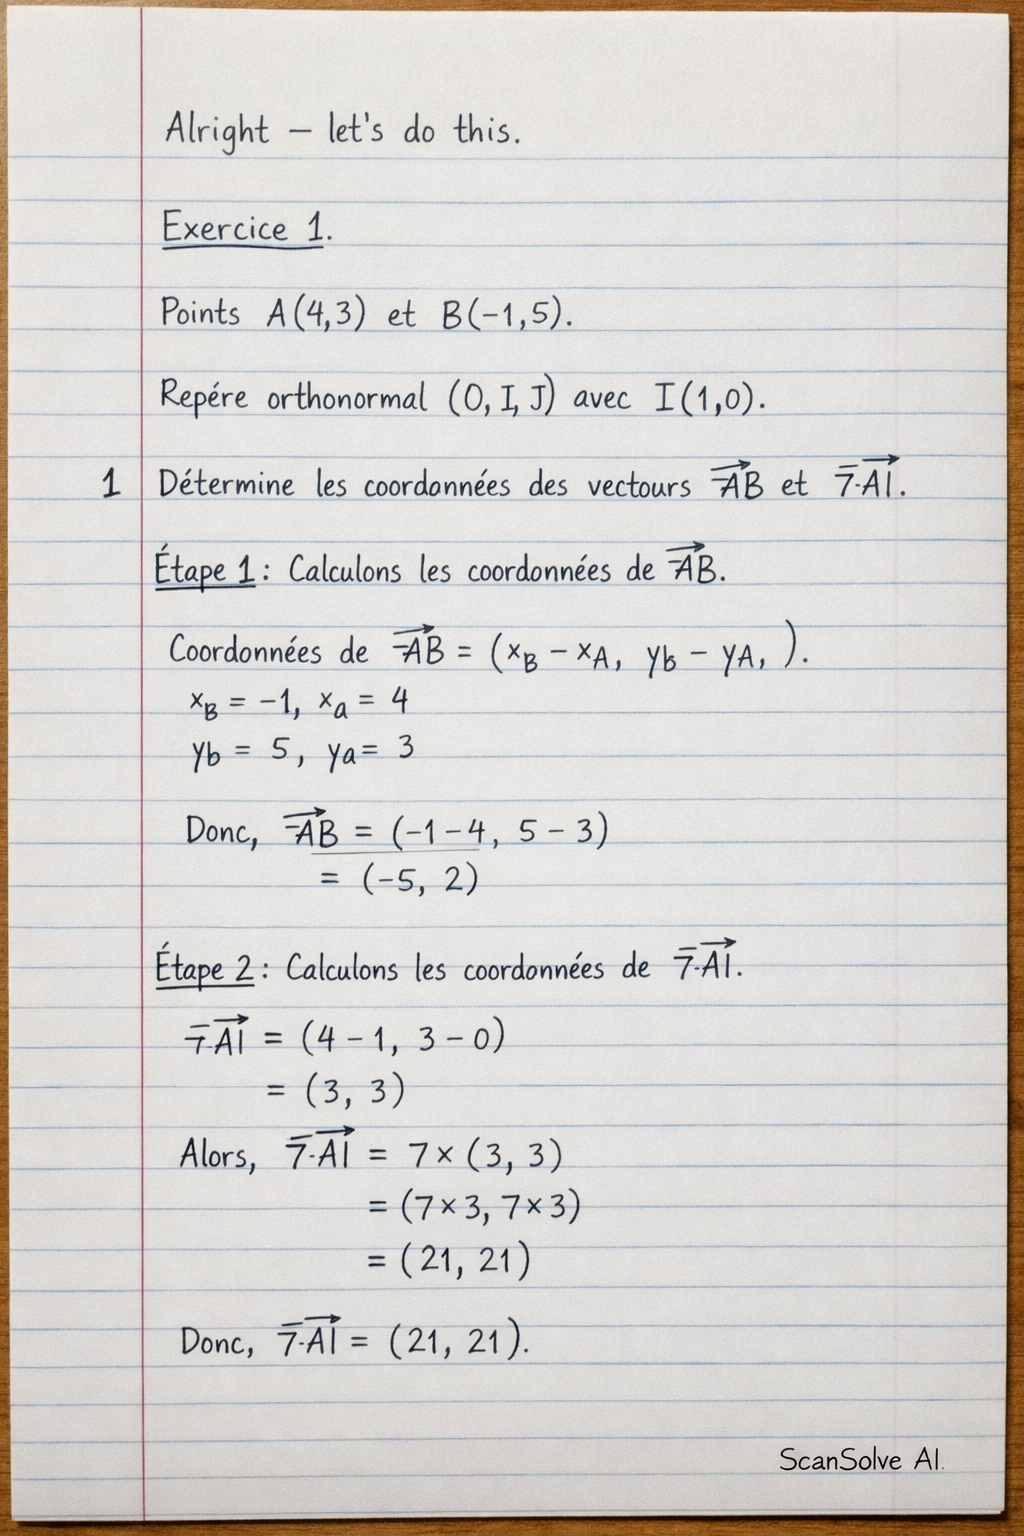 Alright – let's do this.
Exercice 1.
Points A(4,3) et B(-1,5).
Repére orthonormal (O, I, J) avec I(1,0).
1 Détermine les coordonnées des vectours AB et 7·AI.
Étape 1: Calculons les coordonnées de AB.
Coordonnées de AB = (xB - xA, yb - yA, ).
xB = -1, xa = 4
yb = 5, ya = 3
Donc, AB = (-1-4, 5-3)
= (-5, 2)
Étape 2: Calculons les coordonnées de 7·AI.
7·AI = (4-1, 3-0)
= (3, 3)
Alors, 7·AI = 7×(3, 3)
= (7×3, 7×3)
= (21, 21)
Donc, 7·AI = (21, 21).
ScanSolve AI.